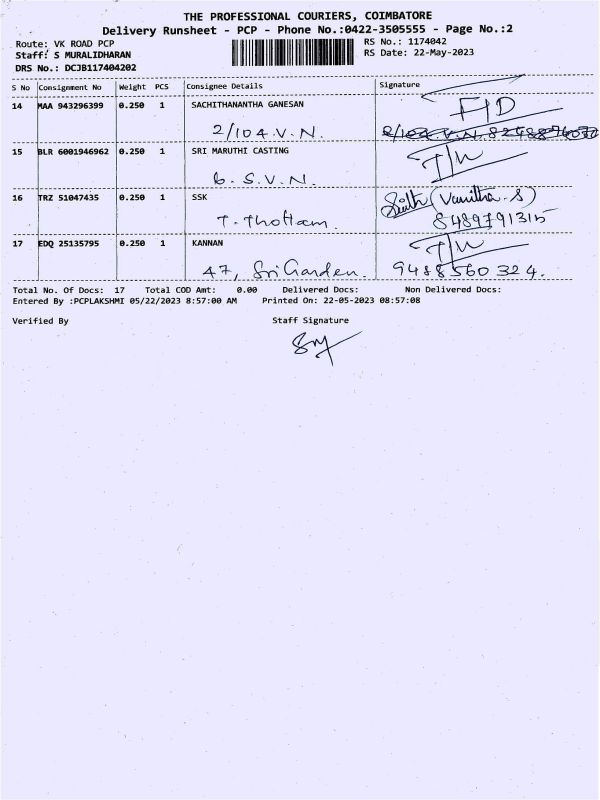 THE PROFESSIONAL COURIERS, COIMBATORE
Delivery Runsheet - PCP - Phone No.:0422-3505555 - Page No.:2
Route: VK ROAD PCP RS No.: 1174042
Staff: S MURALIDHARAN RS Date: 22-May-2023
DRS No.: DCJB117404202
S No Consignment No Weight PCS Consignee Details Signature
14 MAA 943296399 0.250 1 SACHITHANANTHA GANESAN F/D
2/104.V.N.
15 BLR 6001946962 0.250 1 SRI MARUTHI CASTING
6. S.V.N.
16 TRZ 51047435 0.250 1 SSK (Vanitha. S)
T. Thottam. 8489791315
17 EDQ 25135795 0.250 1 KANNAN
47, Sri Garden. 9488560 324.
Total No. Of Docs: 17 Total COD Amt: 0.00 Delivered Docs: Non Delivered Docs:
Entered By :PCPLAKSHMI 05/22/2023 8:57:00 AM Printed On: 22-05-2023 08:57:08
Verified By Staff Signature